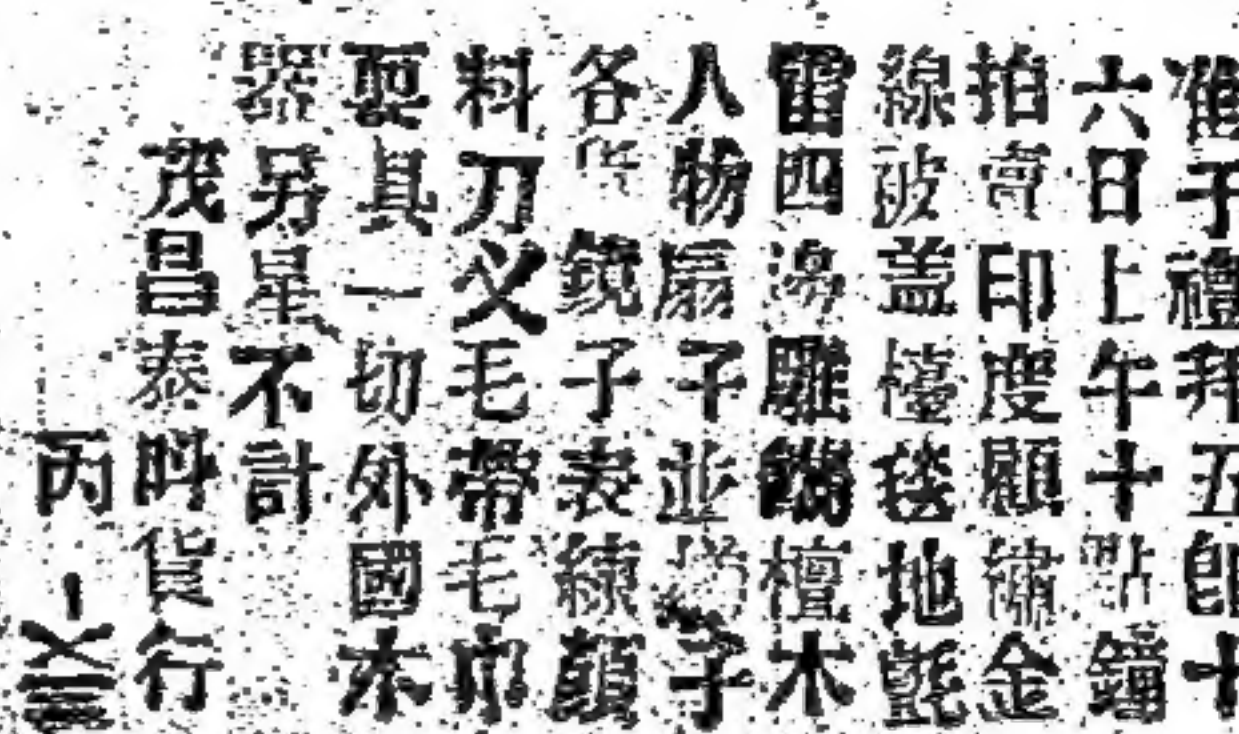 准于禮拜五即十
六日上午十點鐘
拍賣印度顧繡金
線披蓋檯毯地氈
雷四湯雕檀木
人物扇子並子
各貨鏡子表練顏
料刀义毛帶毛巾
耍具一切外國木
器另星不計
茂昌泰呌貨行
丙